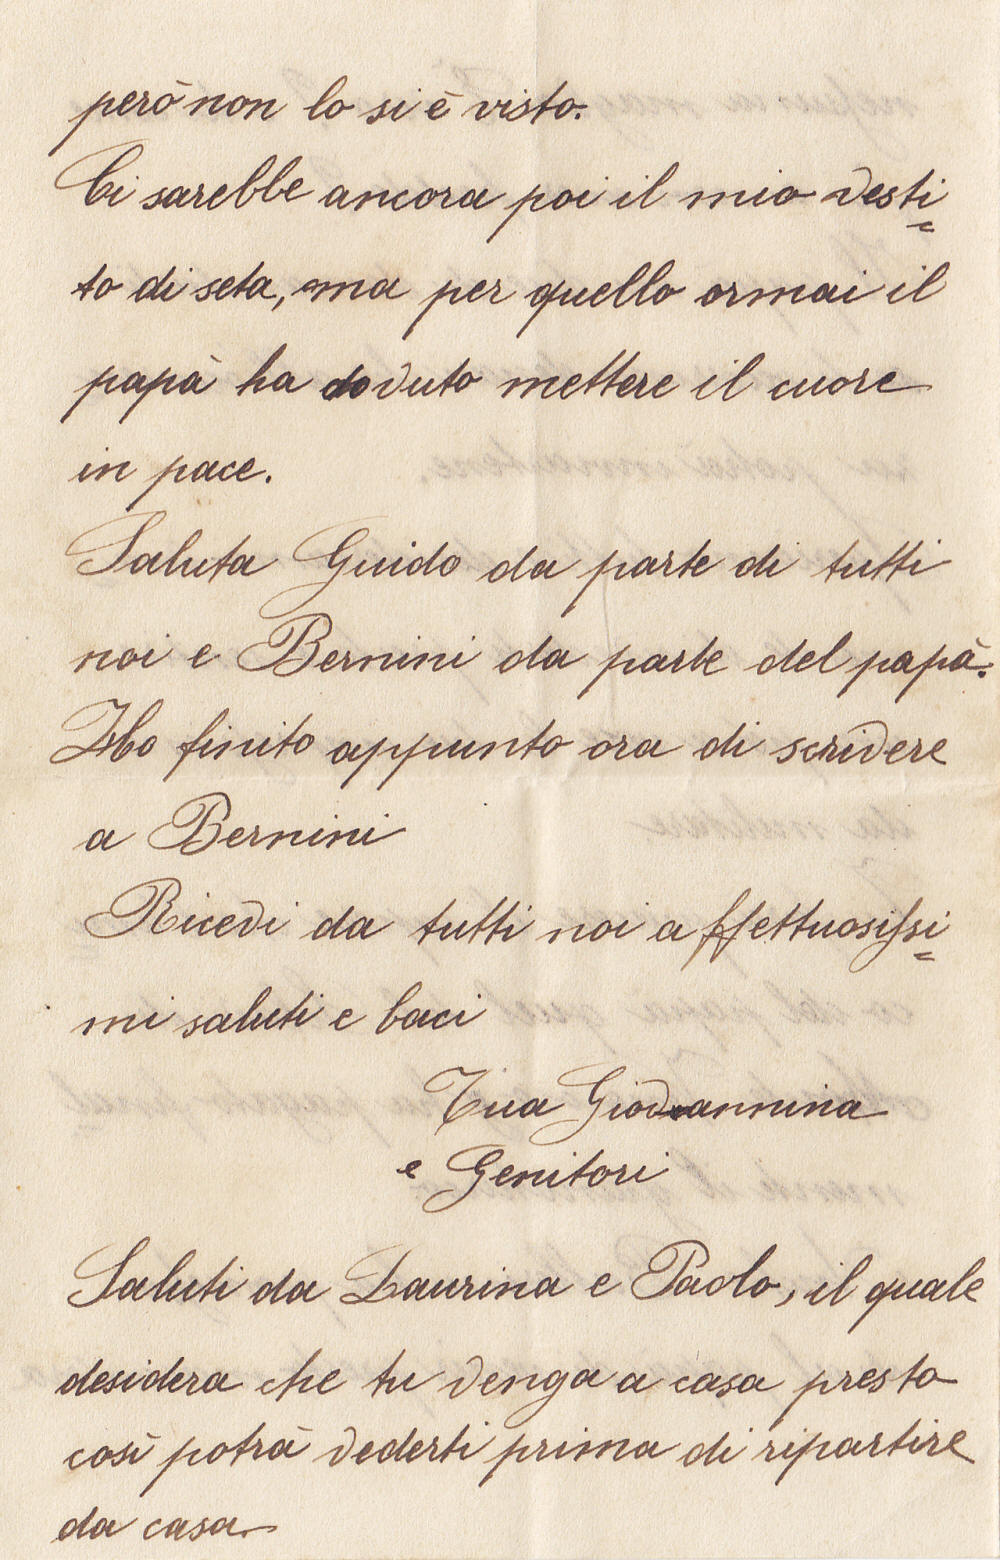 però non lo si è visto.
Ci sarebbe ancora poi il mio vesti=
to di seta, ma per quello ormai il
papà ha dovuto mettere il cuore
in pace.
Saluta Guido da parte di tutti
noi e Bernini da parte del papà.
Ho finito appunto ora di scrivere
a Bernini
Ricevi da tutti noi affettuosissi=
mi saluti e baci
Tua Giovannina
e Genitori
Saluti da Laurina e Paolo, il quale
desidera che tu venga a casa presto
così potrà vederti prima di ripartire
da casa